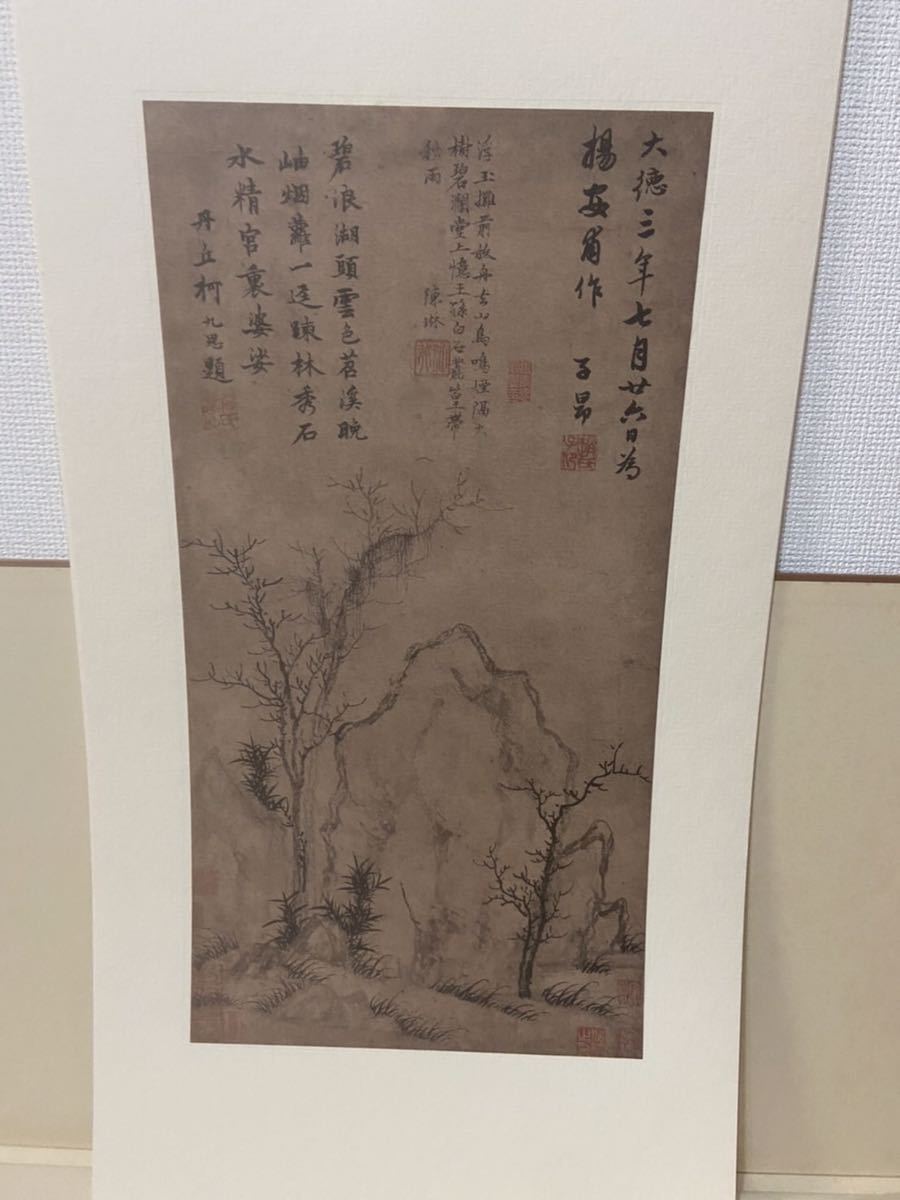 大德三年七月廿六日為
楊安甫作　子昂
浮玉攤前放舟去山鳥鳴煙隔大
樹碧瀾堂上憶王孫白石叢篁帶
秋雨　陳琳
碧浪湖頭雲色苕溪晚
岫烟蘿一逕疎林秀石
水精宮裏婆娑
丹丘柯九思題